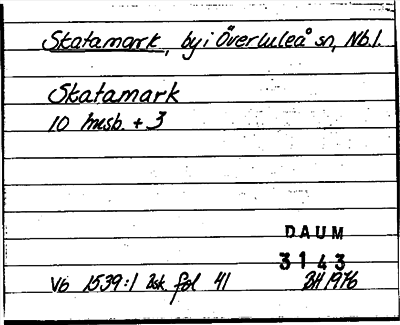 Skatamark, by i Överluleå sn, Nb.l.
Skatamark
10 husb. + 3
DAUM
3143
Vb 1539:1 Bsk. fol 41 BH 1976